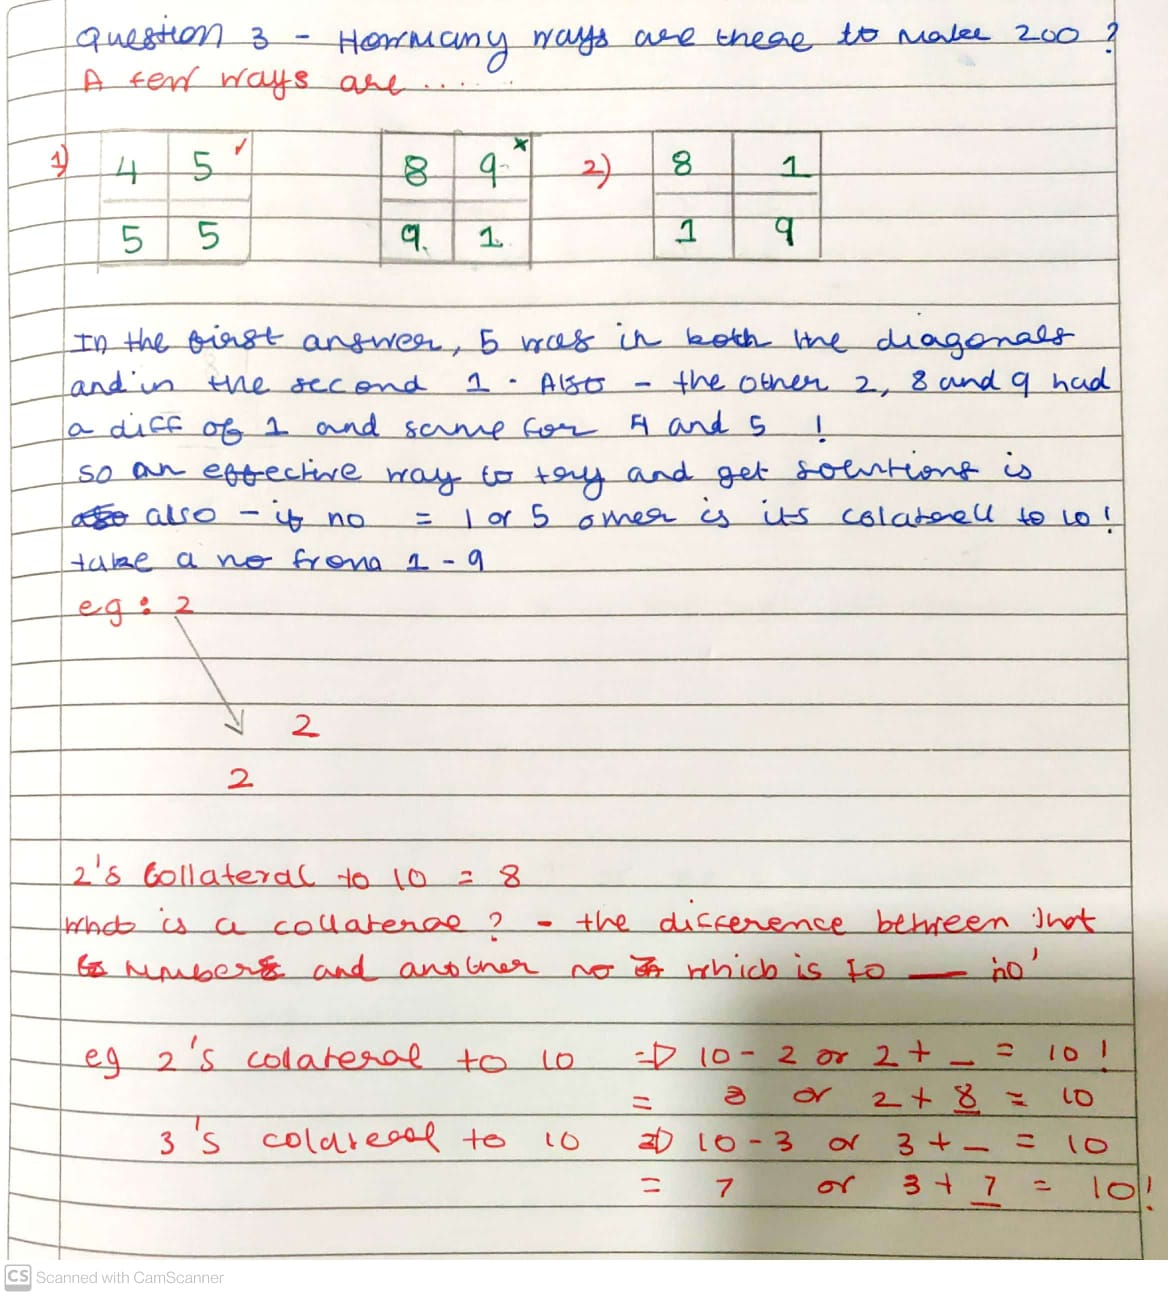 Question 3 - How many ways are there to make 200 ?
A few ways are .....
1) 4 5 8 9 2) 8 1
5 5 9 1 1 9
In the first answer, 5 was in both the diagonals
and in the second 1. Also - the other 2, 8 and 9 had
a diff of 1 and same for 4 and 5 !
so an effective way to try and get solutions is
also - if no = 1 or 5 omer is its colaterell to 10!
take a no from 1 - 9
eg : 2
2
2
2's Collateral to 10 = 8
What is a collaterae ? - the difference between that
numbers and another no which is to — no'
eg 2's colateral to 10 => 10 - 2 or 2 + _ = 10 !
= 8 or 2 + 8 = 10
3's colateral to 10 => 10 - 3 or 3 + _ = 10
= 7 or 3 + 7 = 10!
CS Scanned with CamScanner